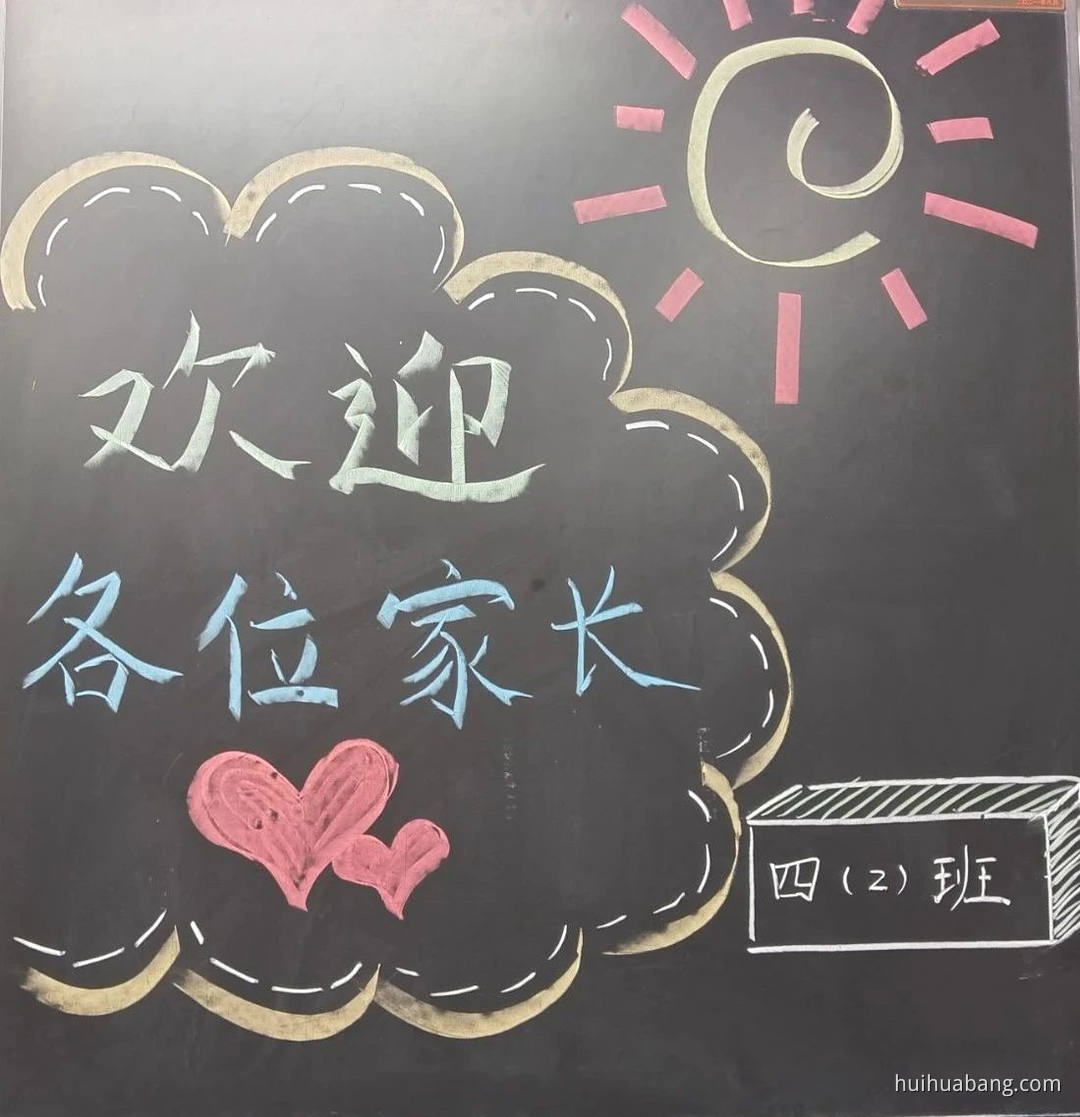 欢迎
各位家长
四（2）班
huihuabang.com